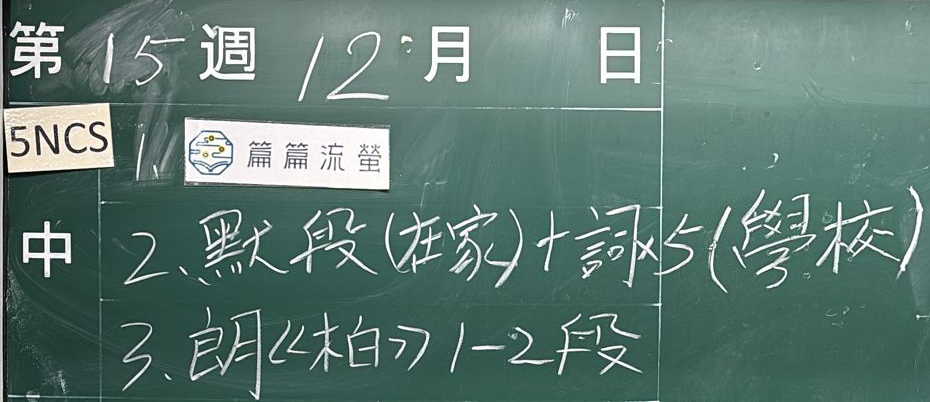 第 15 週 12 月 日
5NCS 1、 篇篇流螢
中 2、默段(在家)+詞x5(學校)
3、朗《柏》1-2段